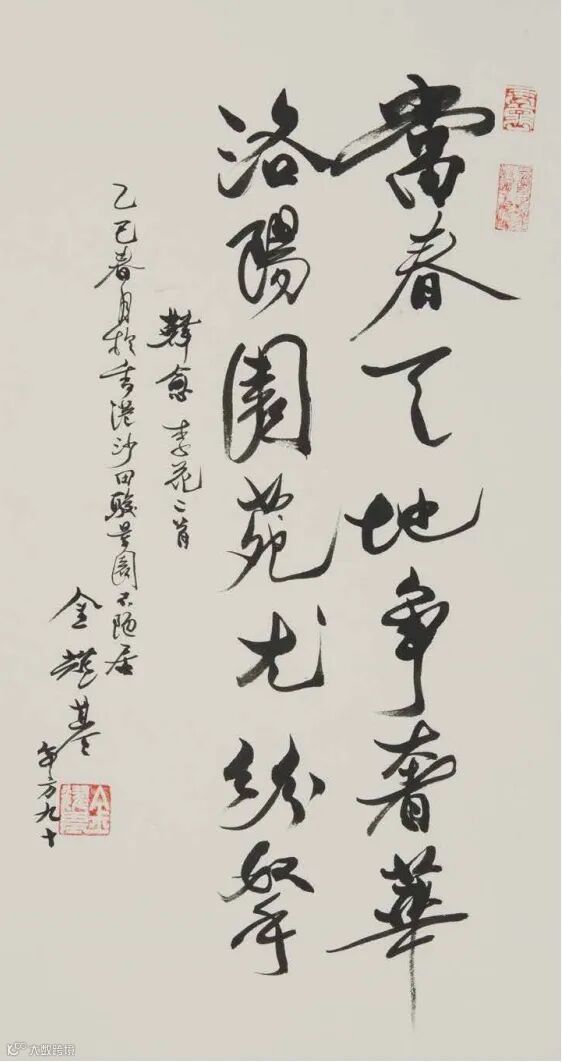 當春天地争奢華
洛陽園苑尤紛拏
韓愈 李花二首
乙巳春月於香港沙田駿景園不陋居
金耀基
年方九十
大数跨境